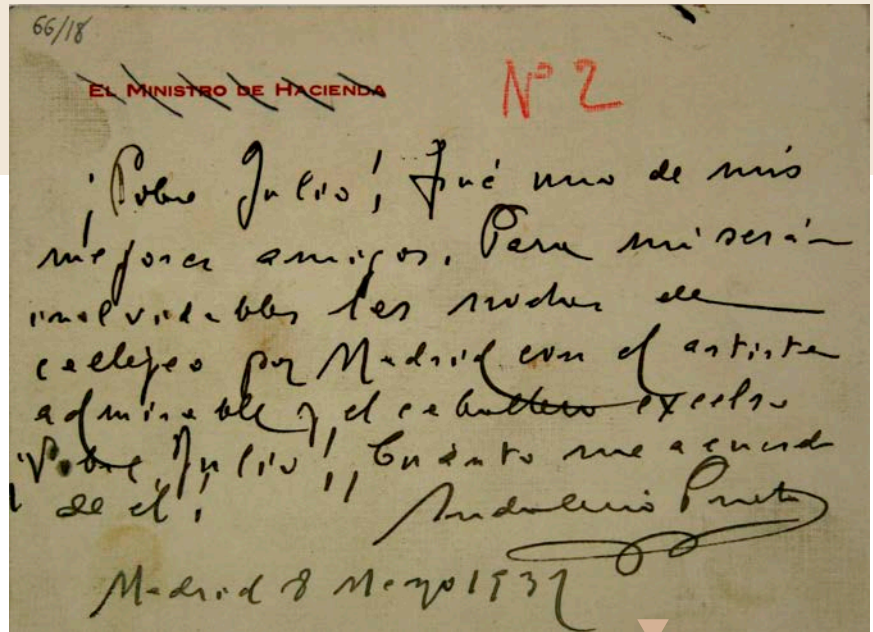 66/18
EL MINISTRO DE HACIENDA
Nº 2
¡Pobre Julio! Fué uno de mis
mejores amigos. Para mi serán
inolvidables las noches de
callejeo por Madrid con el artista
admirable y el caballero excelso
¡Pobre Julio! ¡Cuánto me acuerdo
de él!
Indalecio Prieto
Madrid 8 Mayo